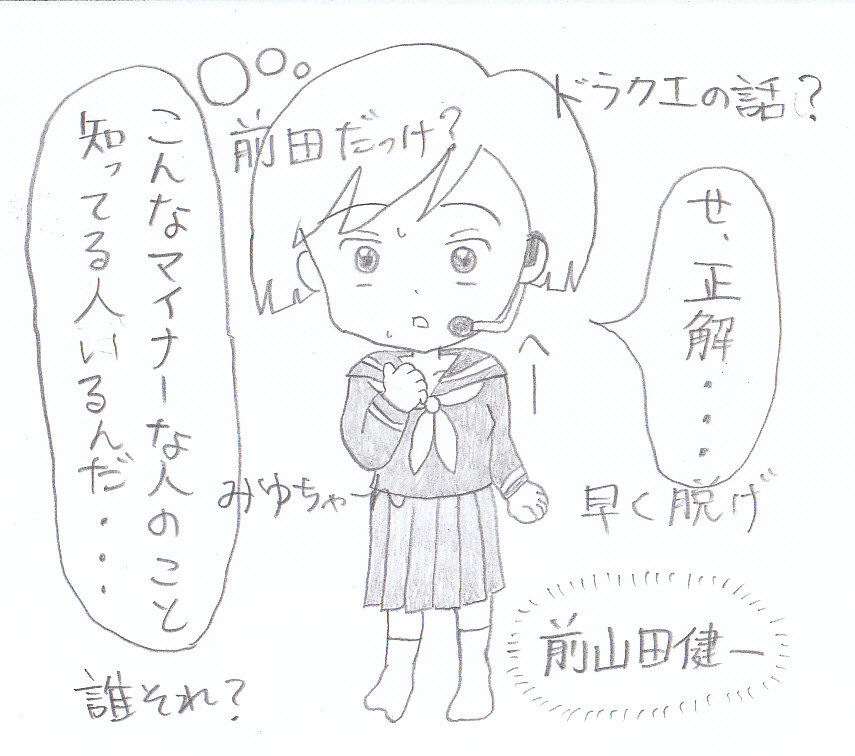 ドラクエの話?
前田だっけ?
せ、正解・・・・
こんなマイナーな人のこと
知ってる人いるんだ・・・
へー
みゆちゃーん
早く脱げ
前山田健一
誰それ?